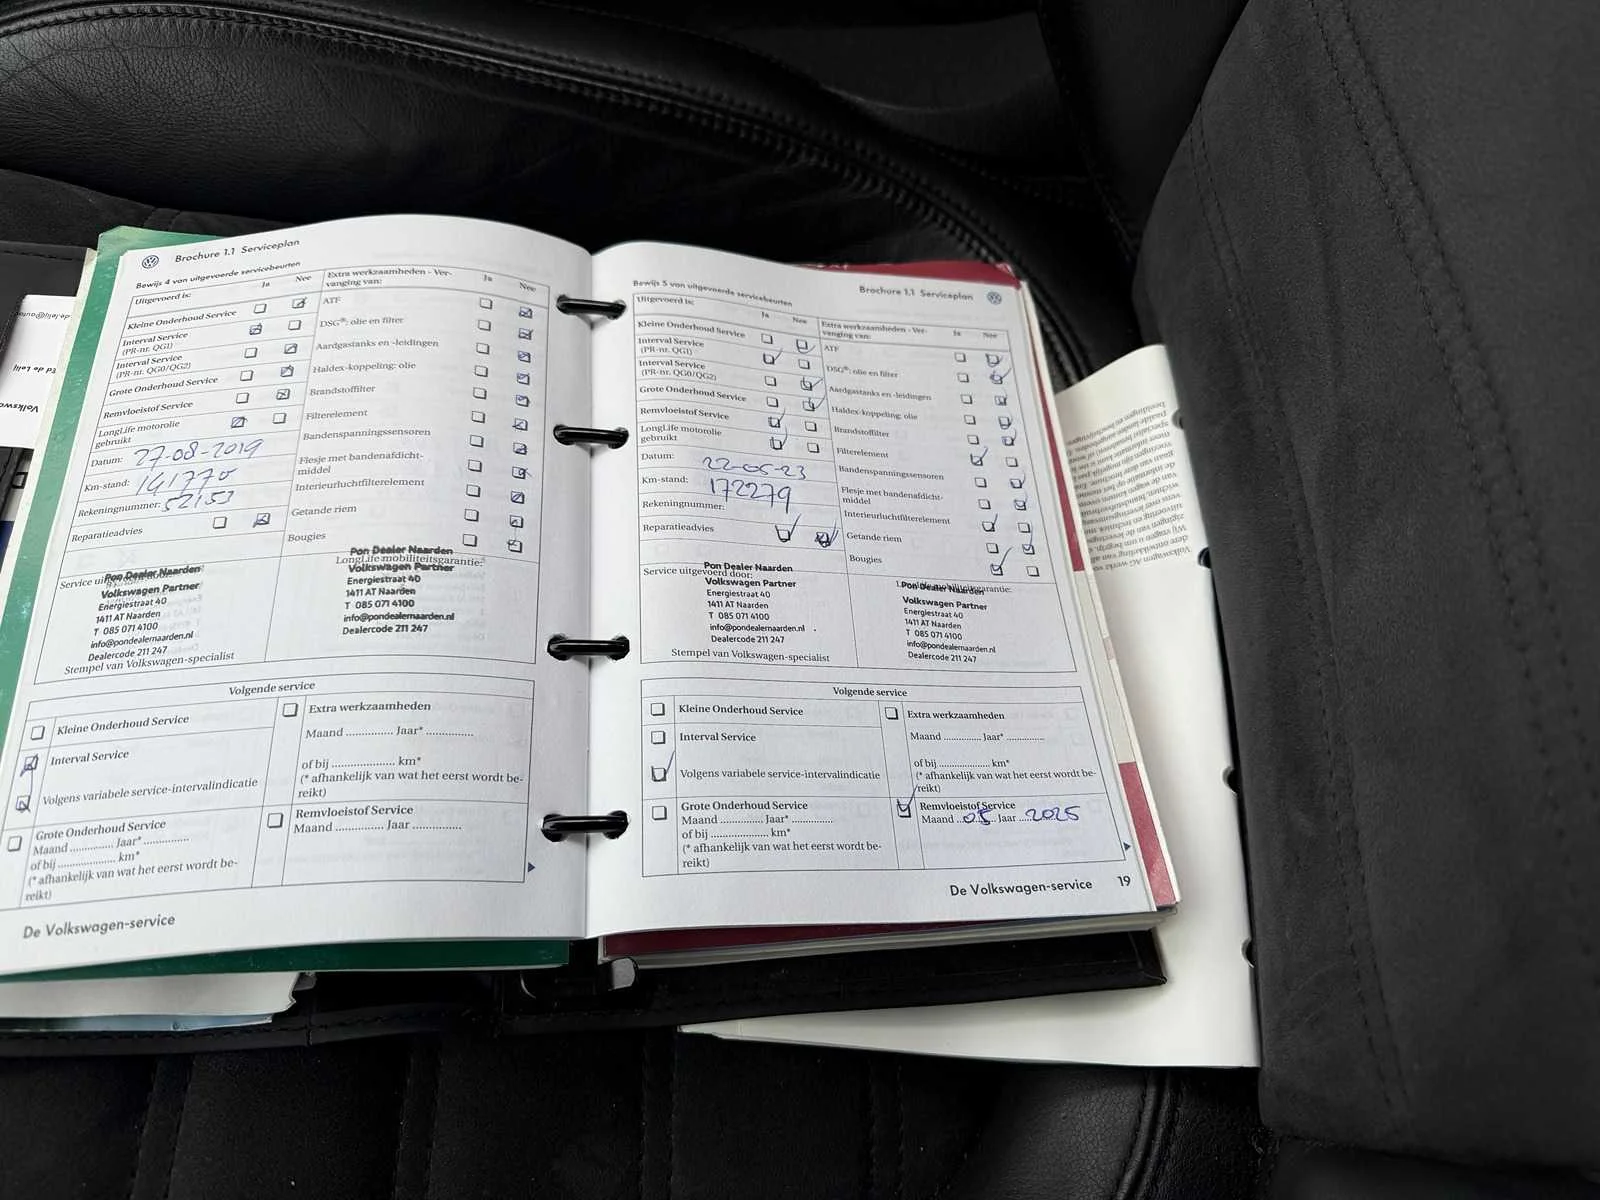 Brochure 1.1 Serviceplan
Bewijs 4 van uitgevoerde servicebeurten
Uitgevoerd is:
Ja
Nee
Kleine Onderhoud Service
Interval Service
(PR-nr. QG1)
Interval Service
(PR-nr. QG0/QG2)
Grote Onderhoud Service
Remvloeistof Service
LongLife motorolie
gebruikt
Datum: 27-08-2019
Km-stand: 141770
Rekeningnummer: 52153
Reparatieadvies
Extra werkzaamheden - Ver-
vanging van:
Ja
Nee
ATF
DSG®: olie en filter
Aardgastanks en -leidingen
Haldex-koppeling: olie
Brandstoffilter
Filterelement
Bandenspanningssensoren
Flesje met bandenafdicht-
middel
Interieurluchtfilterelement
Getande riem
Bougies
Pon Dealer Naarden
Volkswagen Partner
Energiestraat 40
1411 AT Naarden
T 085 071 4100
info@pondealernaarden.nl
Dealercode 211 247
Stempel van Volkswagen-specialist
LongLife mobiliteitsgarantie:
Pon Dealer Naarden
Volkswagen Partner
Energiestraat 40
1411 AT Naarden
T 085 071 4100
info@pondealernaarden.nl
Dealercode 211 247
Volgende service
Kleine Onderhoud Service
Interval Service
Volgens variabele service-intervalindicatie
Grote Onderhoud Service
Maand .............. Jaar* ..............
of bij .................. km*
(* afhankelijk van wat het eerst wordt be-
reikt)
Extra werkzaamheden
Maand .............. Jaar* ..............
of bij .................... km*
(* afhankelijk van wat het eerst wordt be-
reikt)
Remvloeistof Service
Maand .............. Jaar ..............
De Volkswagen-service
Bewijs 5 van uitgevoerde servicebeurten
Brochure 1.1 Serviceplan
Uitgevoerd is:
Ja
Nee
Kleine Onderhoud Service
Interval Service
(PR-nr. QG1)
Interval Service
(PR-nr. QG0/QG2)
Grote Onderhoud Service
Remvloeistof Service
LongLife motorolie
gebruikt
Datum: 22-05-23
Km-stand: 172279
Rekeningnummer:
Reparatieadvies
Extra werkzaamheden - Ver-
vanging van:
Ja
Nee
ATF
DSG®: olie en filter
Aardgastanks en -leidingen
Haldex-koppeling: olie
Brandstoffilter
Filterelement
Bandenspanningssensoren
Flesje met bandenafdicht-
middel
Interieurluchtfilterelement
Getande riem
Bougies
Service uitgevoerd door:
Pon Dealer Naarden
Volkswagen Partner
Energiestraat 40
1411 AT Naarden
T 085 071 4100
info@pondealernaarden.nl
Dealercode 211 247
Stempel van Volkswagen-specialist
Pon Dealer Naarden
Volkswagen Partner
Energiestraat 40
1411 AT Naarden
T 085 071 4100
info@pondealernaarden.nl
Dealercode 211 247
Volgende service
Kleine Onderhoud Service
Interval Service
Volgens variabele service-intervalindicatie
Grote Onderhoud Service
Maand .............. Jaar* ..............
of bij .................... km*
(* afhankelijk van wat het eerst wordt be-
reikt)
Extra werkzaamheden
Maand .............. Jaar* ..............
of bij .................... km*
(* afhankelijk van wat het eerst wordt be-
reikt)
Remvloeistof Service
Maand 05 Jaar 2025
De Volkswagen-service 19